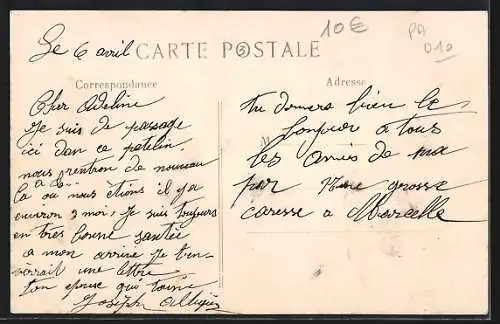 10€
PA
010
Le 6 avril
CARTE POSTALE
Correspondance
Cher Adeline
Je suis de passage
ici dan ce patelin
nous rentron de nouveau
la ou nous étions il y a
environ 3 moi, Je suis toujours
en tres bonne santée
a mon arrivé Je t'en-
vérrait une lettre
ton epouse qui t'aime
Joseph
Adresse
tu donnera bien le
bonjour a tous
M
les amies de ma
par Une grosse
caresse a Marcelle